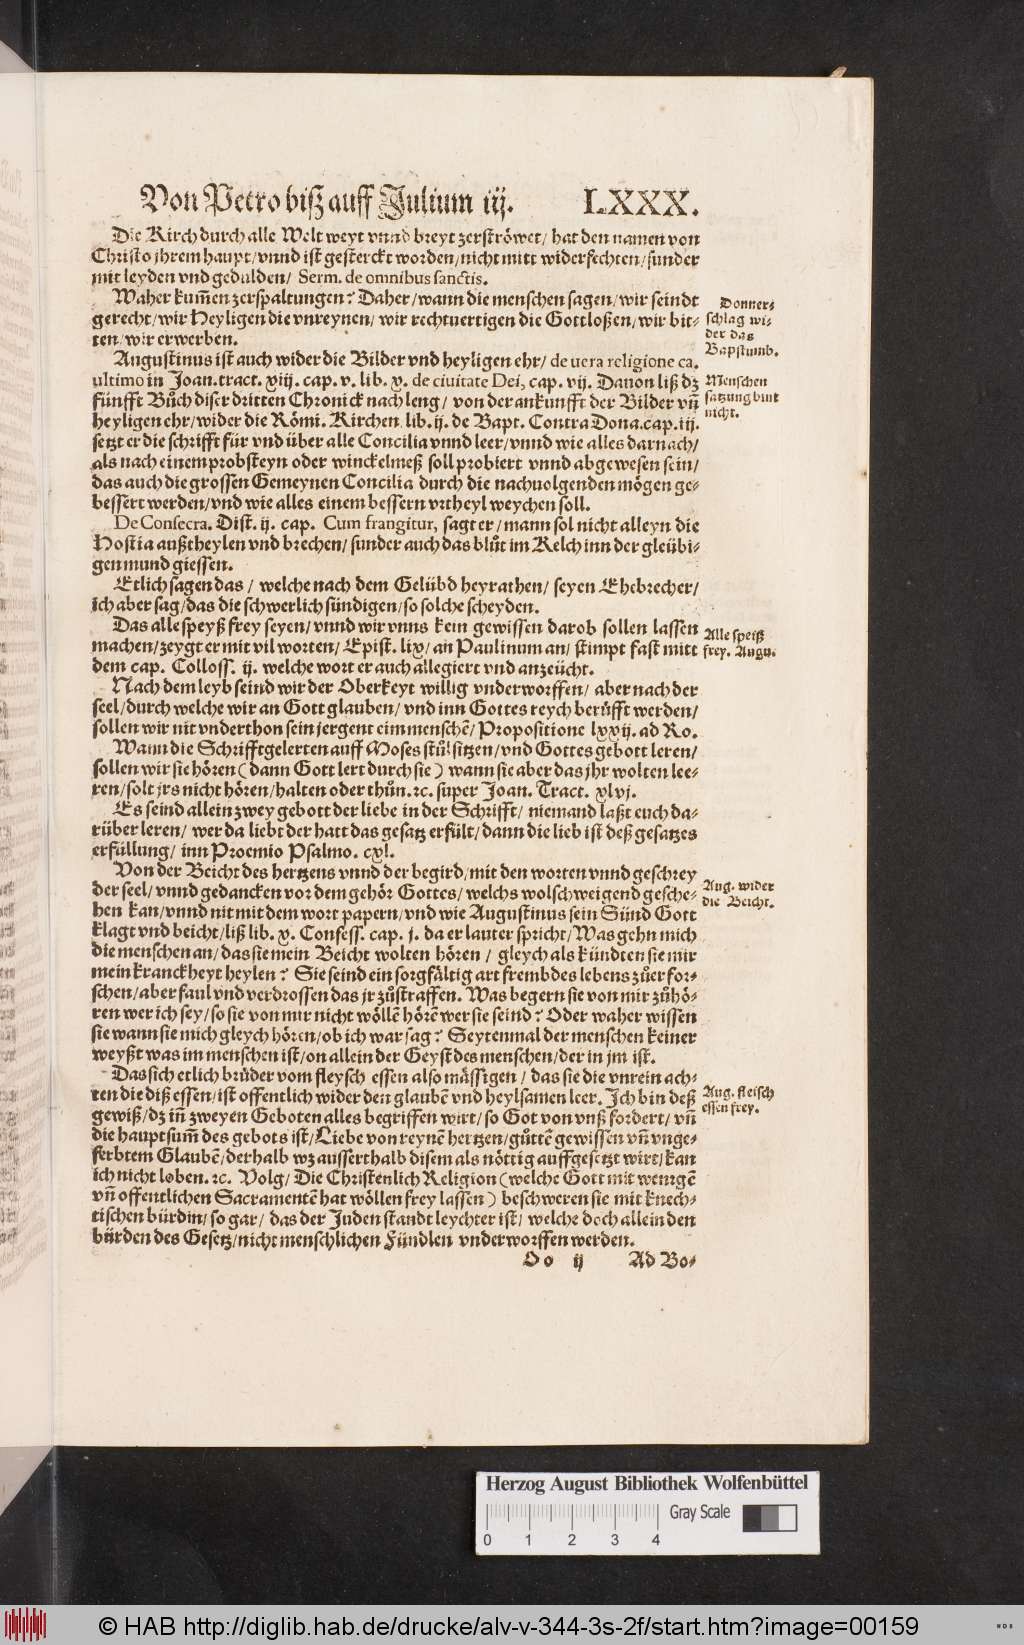 Von Petro biß auff Julium iij. LXXX.
Die Kirch durch alle Welt weyt vnnd breyt zerströwet/ hat den namen von
Christo jhrem haupt/ vnnd ist gesterckt worden/ nicht mitt widerfechten/ sunder
mit leyden vnd gedulden/ Serm. de omnibus sanctis.
Waher kum̃en zerspaltungen? Daher/ wann die menschen sagen/ wir seindt
gerecht/ wir Heyligen die vnreynen/ wir rechtuertigen die Gottloßen/ wir bit-
ten/ wir erwerben.
Donner-
schlag wi-
der das
Bapstumb.
Augustinus ist auch wider die Bilder vnd heyligen ehr/ de uera religione ca.
ultimo in Joan. tract. xiij. cap. v. lib. x. de ciuitate Dei, cap. vij. Dauon liß dz
fünfft Bůch diser dritten Chronick nach leng/ von der ankunfft der Bilder vñ
heyligen ehr/ wider die Römi. Kirchen lib. ij. de Bapt. Contra Dona. cap. iij.
setzt er die schrifft für vnd über alle Concilia vnnd leer/ vnnd wie alles darnach/
als nach einem probsteyn oder winckelmeß soll probiert vnnd abgewesen sein/
das auch die grossen Gemeynen Concilia durch die nachuolgenden mögen ge-
bessert werden/ vnd wie alles einem bessern vrtheyl weychen soll.
Menschen
satzung bint
nicht.
De Consecra. Dist. ij. cap. Cum frangitur, sagt er/ mann sol nicht alleyn die
Hostia außtheylen vnd brechen/ sunder auch das blůt im Kelch inn der gleübi-
gen mund giessen.
Etlich sagen das/ welche nach dem Gelübd heyrathen/ seyen Ehebrecher/
ich aber sag/ das die schwerlich sündigen/ so solche scheyden.
Das alle speyß frey seyen/ vnnd wir vnns kein gewissen darob sollen lassen
machen/ zeygt er mit vil worten/ Epist. lix/ an Paulinum an/ stimpt fast mitt
dem cap. Colloss. ij. welche wort er auch allegiert vnd anzeücht.
Alle speiß
frey. Augu.
Nach dem leyb seind wir der Oberkeyt willig vnderworffen/ aber nach der
seel/ durch welche wir an Gott glauben/ vnd inn Gottes reych berůfft werden/
sollen wir nit vnderthon sein jergent eim menschẽ/ Propositione lxxij. ad Ro.
Wann die Schrifftgelerten auff Moses stůl sitzen/ vnd Gottes gebott leren/
sollen wir sie hören (dann Gott lert durch sie) wann sie aber das jhr wolten lee-
ren/ solt jrs nicht hören/ halten oder thůn. ꝛc. super Joan. Tract. xlvj.
Es seind allein zwey gebott der liebe in der Schrifft/ niemand laßt euch da-
rüber leren/ wer da liebt der hatt das gesatz erfült/ dann die lieb ist deß gesatzes
erfüllung/ inn Proemio Psalmo. cxl.
Von der Beicht des hertzens vnnd der begird/ mit den worten vnnd geschrey
der seel/ vnnd gedancken vor dem gehör Gottes/ welchs wol schweigend gesche-
hen kan/ vnnd nit mit dem wort papern/ vnd wie Augustinus sein Sünd Gott
klagt vnd beicht/ liß lib. x. Confess. cap. j. da er lauter spricht/ Was gehn mich
die menschen an/ das sie mein Beicht wolten hören/ gleych als kündten sie mir
mein kranckheyt heylen? Sie seind ein sorgfältig art frembdes lebens zůerfor-
schen/ aber faul vnd verdrossen das jr zůstraffen. Was begern sie von mir zůhö-
ren wer ich sey/ so sie von mir nicht wöllẽ hörẽ wer sie seind? Oder waher wissen
sie wann sie mich gleych hören/ ob ich war sag? Seytenmal der menschen keiner
weyßt was im menschen ist/ on allein der Geyst des menschen/ der in jm ist.
Aug. wider
die Beicht.
Das sich etlich brůder vom fleysch essen also mässigen/ das sie die vnrein ach-
ten die diß essen/ ist offentlich wider den glaubẽ vnd heylsamen leer. Ich bin deß
gewiß/ dz iñ zweyen Geboten alles begriffen wirt/ so Got von vnß fordert/ vñ
die hauptsum̃ des gebots ist/ Liebe von reynẽ hertzen/ gůttẽ gewissen vñ vnge-
ferbtem Glaubẽ/ derhalb wz ausserthalb disem als nöttig auffgesetzt wirt/ kan
ich nicht loben. ꝛc. Volg/ Die Christenlich Religion (welche Gott mit wenigẽ
vñ offentlichen Sacramentẽ hat wöllen frey lassen) beschweren sie mit knech-
tischen bürdin/ so gar/ das der Juden standt leychter ist/ welche doch allein den
bürden des Gesetz/ nicht menschlichen Fündlen vnderworffen werden.
Aug. fleisch
essen frey.
Oo ij Ad Bo-
Herzog August Bibliothek Wolfenbüttel
0 1 2 3 4 Gray Scale
© HAB http://diglib.hab.de/drucke/alv-v-344-3s-2f/start.htm?image=00159